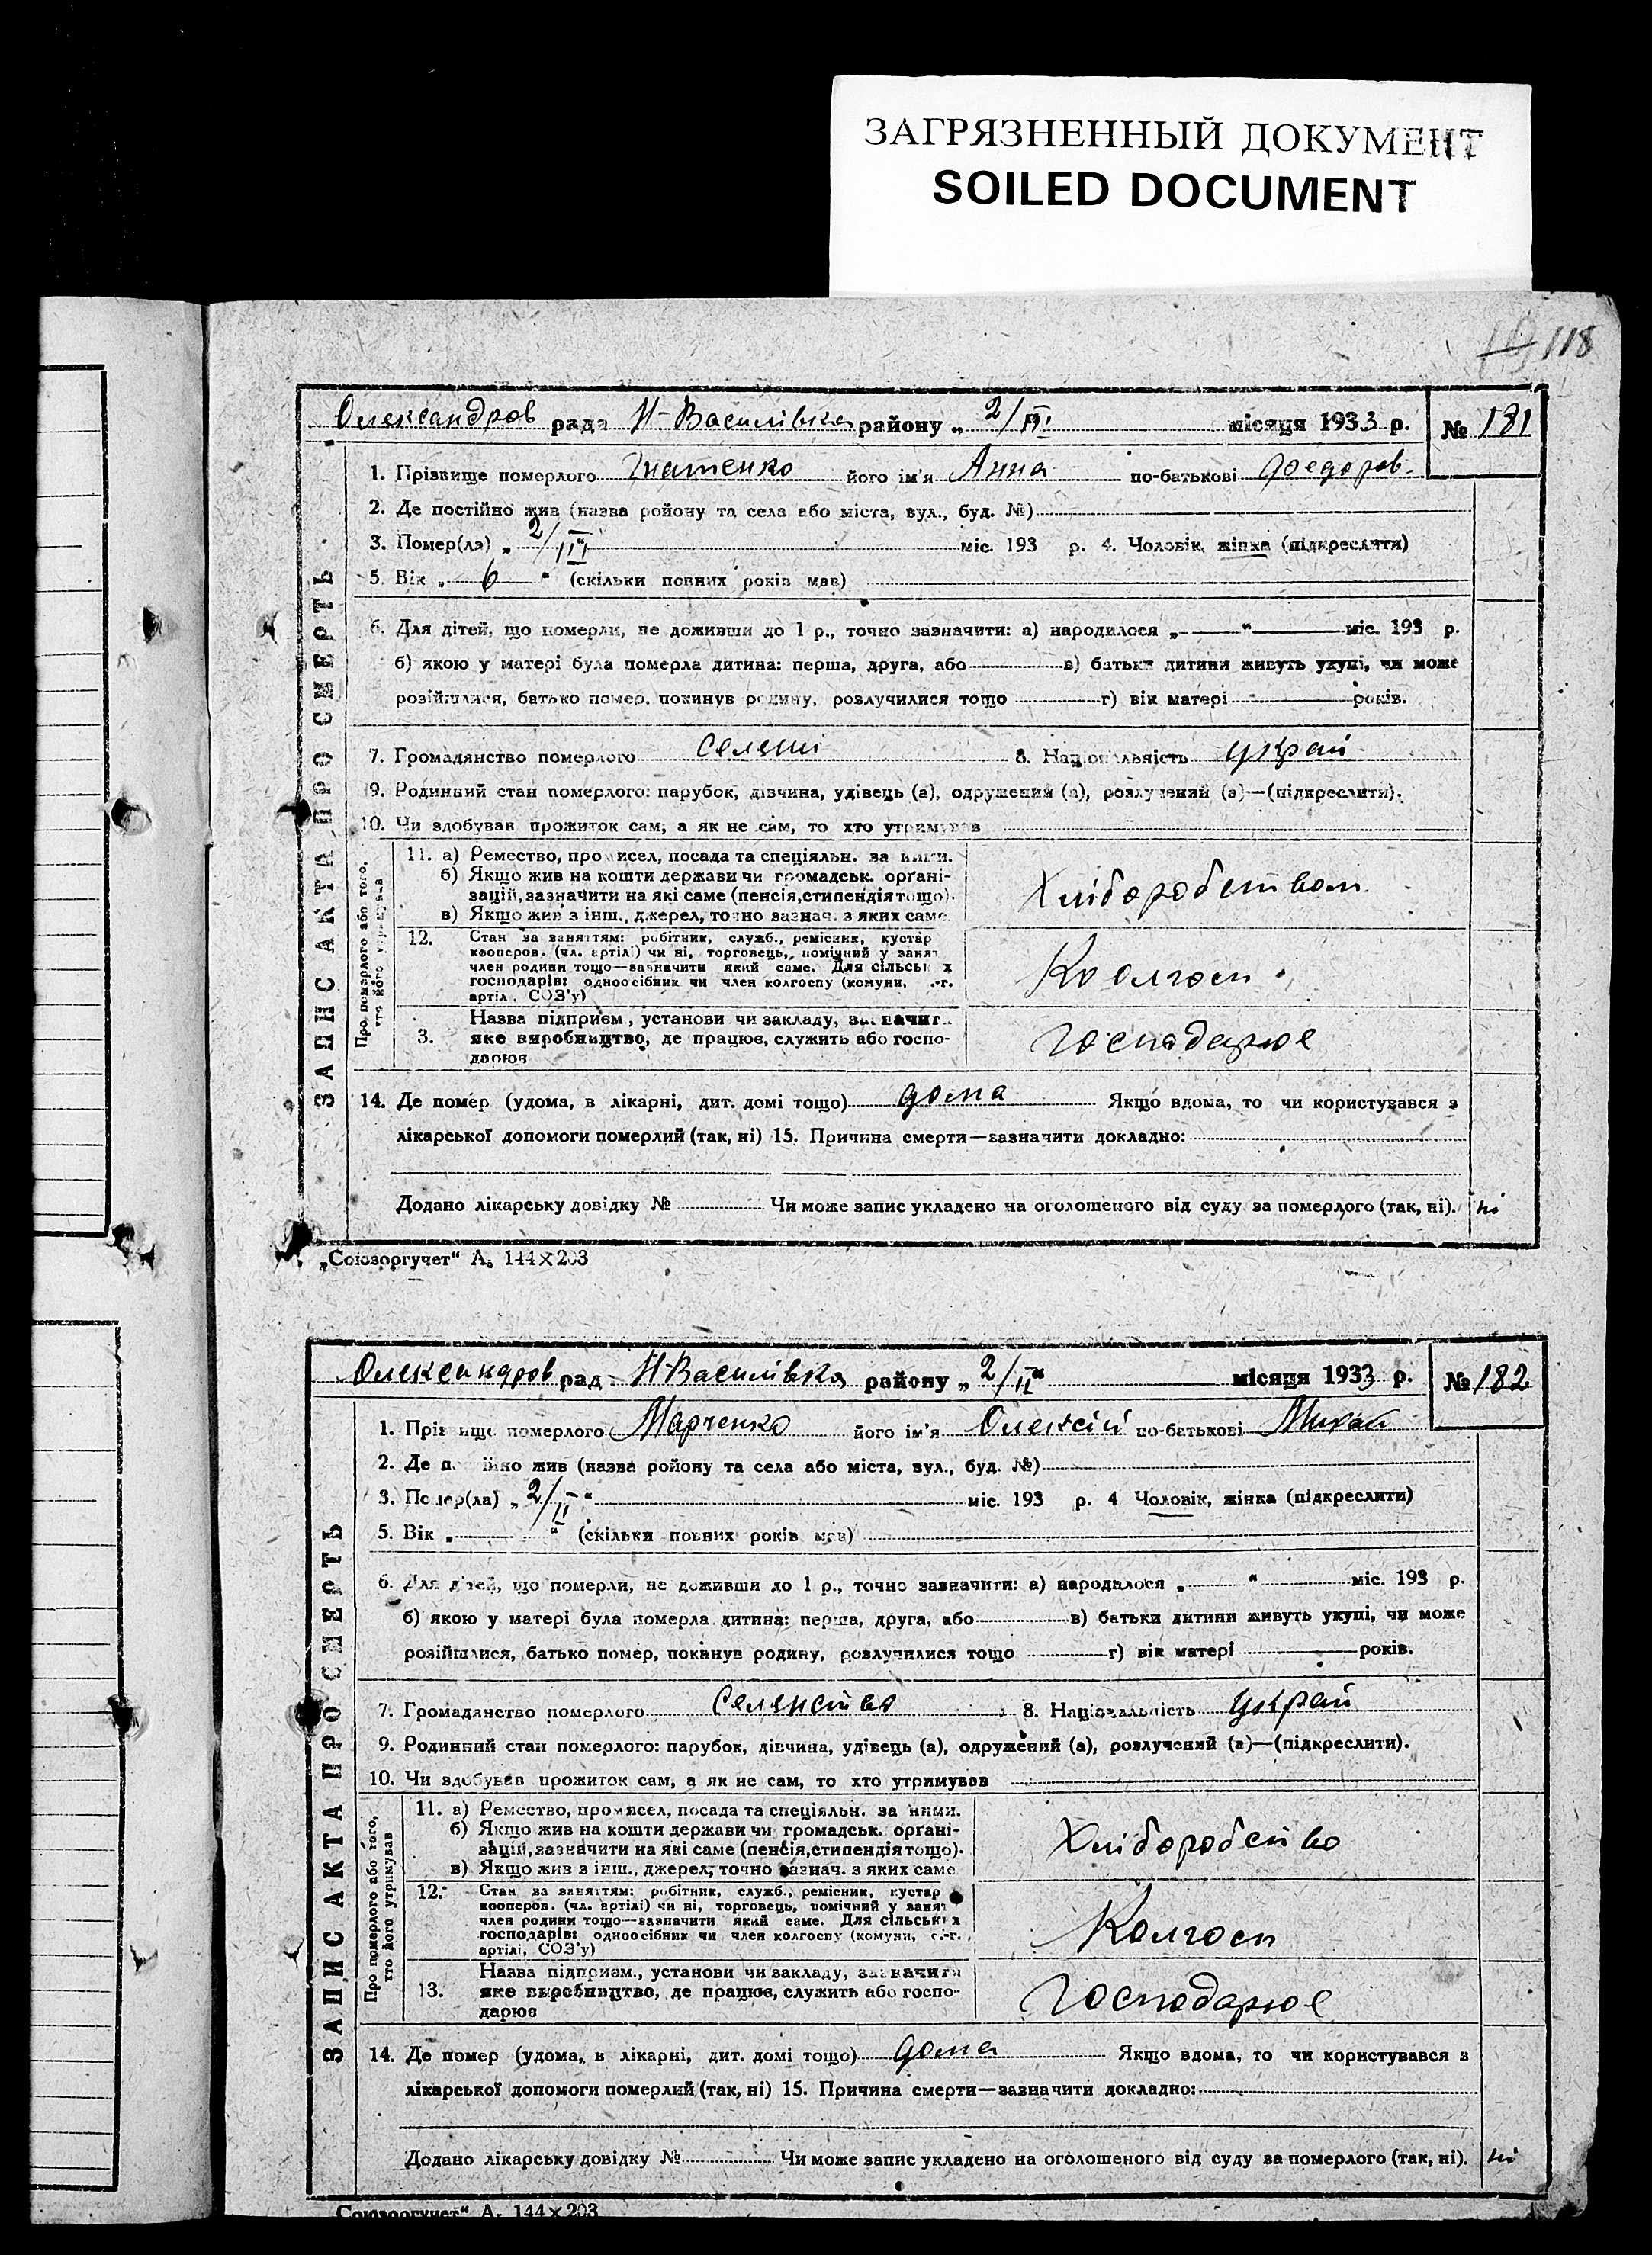 ЗАГРЯЗНЕННЫЙ ДОКУМЕНТ
SOILED DOCUMENT
118
Олександров рада Н-Василівка району „ 2/III місяця 1933 р. № 181
1. Прізвище померлого Гнатенко його ім'я Анна по-батькові Федоров.
2. Де постійно жив (назва ройону та села або міста, вул., буд. №)
3. Помер(ла) „ 2/III“ міс. 193 р. 4. Чоловік, жінка (підкреслити)
5. Вік „ 6 “ (скільки повних років мав)
6. Для дітей, що померли, не доживши до 1 р., точно зазначити: а) народилося „ “ міс. 193 р.
б) якою у матері була померла дитина: перша, друга, або в) батьки дитини живуть укупі, чи може
розійшлися, батько помер, покинув родину, розлучилися тощо г) вік матері років.
7. Громадянство померлого 8. Національність украй
9. Родинний стан померлого: парубок, дівчина, удівець (а), одружений (а), розлучений (а)—(підкреслити).
10. Чи здобував прожиток сам, а як не сам, то хто утримував
ЗАПИС АКТА ПРО СМЕРТЬ
Про померлого або того, хто його утримував
11. а) Ремество, промисел, посада та спеціяльн. за ними.
б) Якщо жив на кошти держави чи громадськ. орґані-
зацій, зазначити на які саме (пенсія, стипендія тощо).
в) Якщо жив з інш., джерел, точно зазнач. з яких саме
Хліборобством
12. Стан за заняттям: робітник, служб., ремісник, кустар
кооперов. (чл. артілі) чи ні, торговець, помічний у занят
член родини тощо—зазначити який саме. Для сільських
господарів: одноосібник чи член колгоспу (комуни, с.-г.
артілі, СОЗ'у)
Коолгосп
3. Назва підприєм., установи чи закладу, зазначити
яке виробництво, де працює, служить або госпо-
дарює
Господарює
14. Де помер (удома, в лікарні, дит. домі тощо) дома Якщо вдома, то чи користувався з
лікарської допомоги померлий (так, ні) 15. Причина смерти—зазначити докладно:
Додано лікарську довідку № Чи може запис укладено на оголошеного від суду за померлого (так, ні). ні
„Союзоргучет“ А₅ 144×203
Олександров рад Н-Василівка району „ 2/II“ місяця 1933 р. № 182
1. Прізвище померлого Марченко його ім'я Олексій по-батькові Михай
2. Де постійно жив (назва ройону та села або міста, вул., буд. №)
3. Помер(ла) „ 2/II “ міс. 193 р. 4 Чоловік, жінка (підкреслити)
5. Вік „ “ (скільки повних років мав)
6. Для дітей, що померли, не доживши до 1 р., точно зазначити: а) народилося „ “ міс. 193 р.
б) якою у матері була померла дитина: перша, друга, або в) батьки дитини живуть укупі, чи може
розійшлися, батько помер, покинув родину, розлучилися тощо г) вік матері років.
7. Громадянство померлого Селянство 8. Національність украй
9. Родинний стан померлого: парубок, дівчина, удівець (а), одружений (а), розлучений (а)—(підкреслити).
10. Чи здобував прожиток сам, а як не сам, то хто утримував
ЗАПИС АКТА ПРО СМЕРТЬ
Про померлого або того, хто його утримував
11. а) Ремество, промисел, посада та спеціяльн. за ними.
б) Якщо жив на кошти держави чи громадськ. орґані-
зацій, зазначити на які саме (пенсія, стипендія тощо).
в) Якщо жив з інш., джерел, точно зазнач. з яких саме
Хліборобство
12. Стан за заняттям: робітник, служб., ремісник, кустар
кооперов. (чл. артілі) чи ні, торговець, помічний у занят
член родини тощо—зазначити який саме. Для сільських
господарів: одноосібник чи член колгоспу (комуни, с.-г.
артілі, СОЗ'у)
Колгосп
13. Назва підприєм., установи чи закладу, зазначити
яке виробництво, де працює, служить або госпо-
дарює
Господарює
14. Де помер (удома, в лікарні, дит. домі тощо) дома Якщо вдома, то чи користувався з
лікарської допомоги померлий (так, ні) 15. Причина смерти—зазначити докладно:
Додано лікарську довідку № Чи може запис укладено на оголошеного від суду за померлого (так, ні). ні
Союзоргучет“ А₅ 144×203